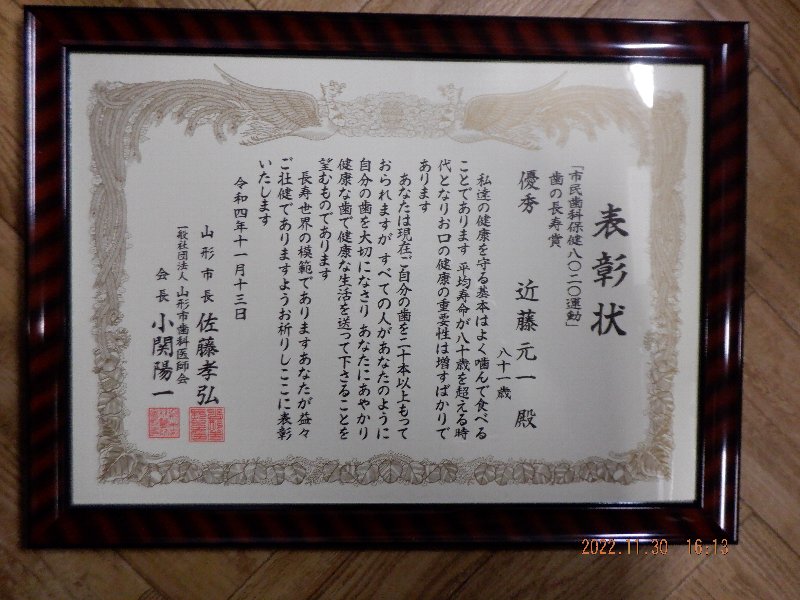 表彰状
「市民歯科保健八〇二〇運動」
歯の長寿賞
優秀 近藤元一殿
八十一歳
私達の健康を守る基本はよく噛んで食べる
ことであります 平均寿命が八十歳を超える時
代となりお口の健康の重要性は増すばかりで
あります
あなたは現在ご自分の歯を二十本以上もって
おられますが すべての人があなたのように
自分の歯を大切になさり あなたにあやかり
健康な歯で健康な生活を送って下さることを
望むものであります
長寿世界の模範でありますあなたが益々
ご壮健でありますようお祈りしここに表彰
いたします
令和四年十一月十三日
山形市長 佐藤孝弘
一般社団法人 山形市歯科医師会
会長 小関陽一
2022.11.30 16:13